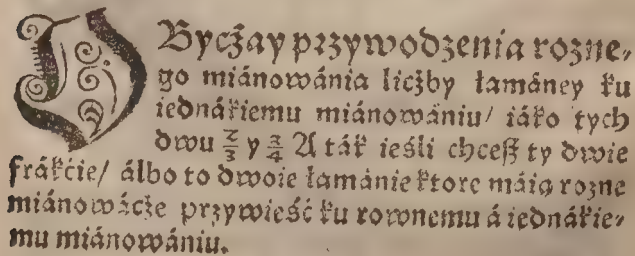 OBycżay przywodzenia rozne⸗
go miánowánia licżby łamáney ku
iednákiemu miánowániu/ iáko tych
dwu 2/3 y 3/4 A ták ieśli chceß ty dwie
frákcie/ álbo to dwoie łamánie ktore máią rozne
miánowácże przywieść ku rownemu á iednákie⸗
mu miánowániu.